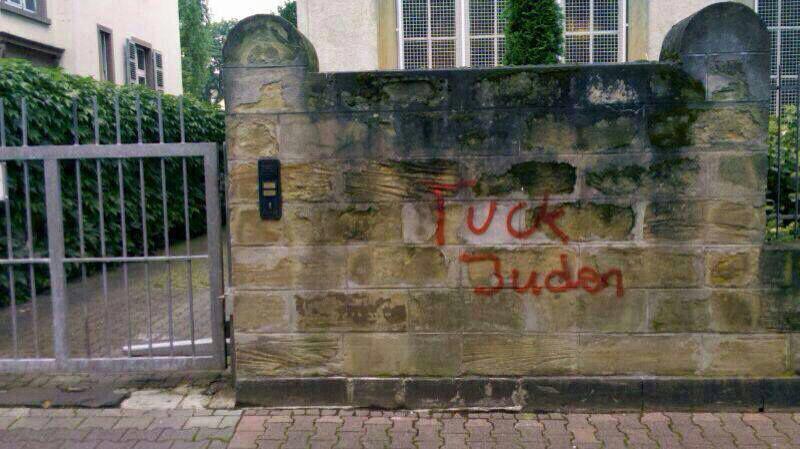 Fuck
Juden